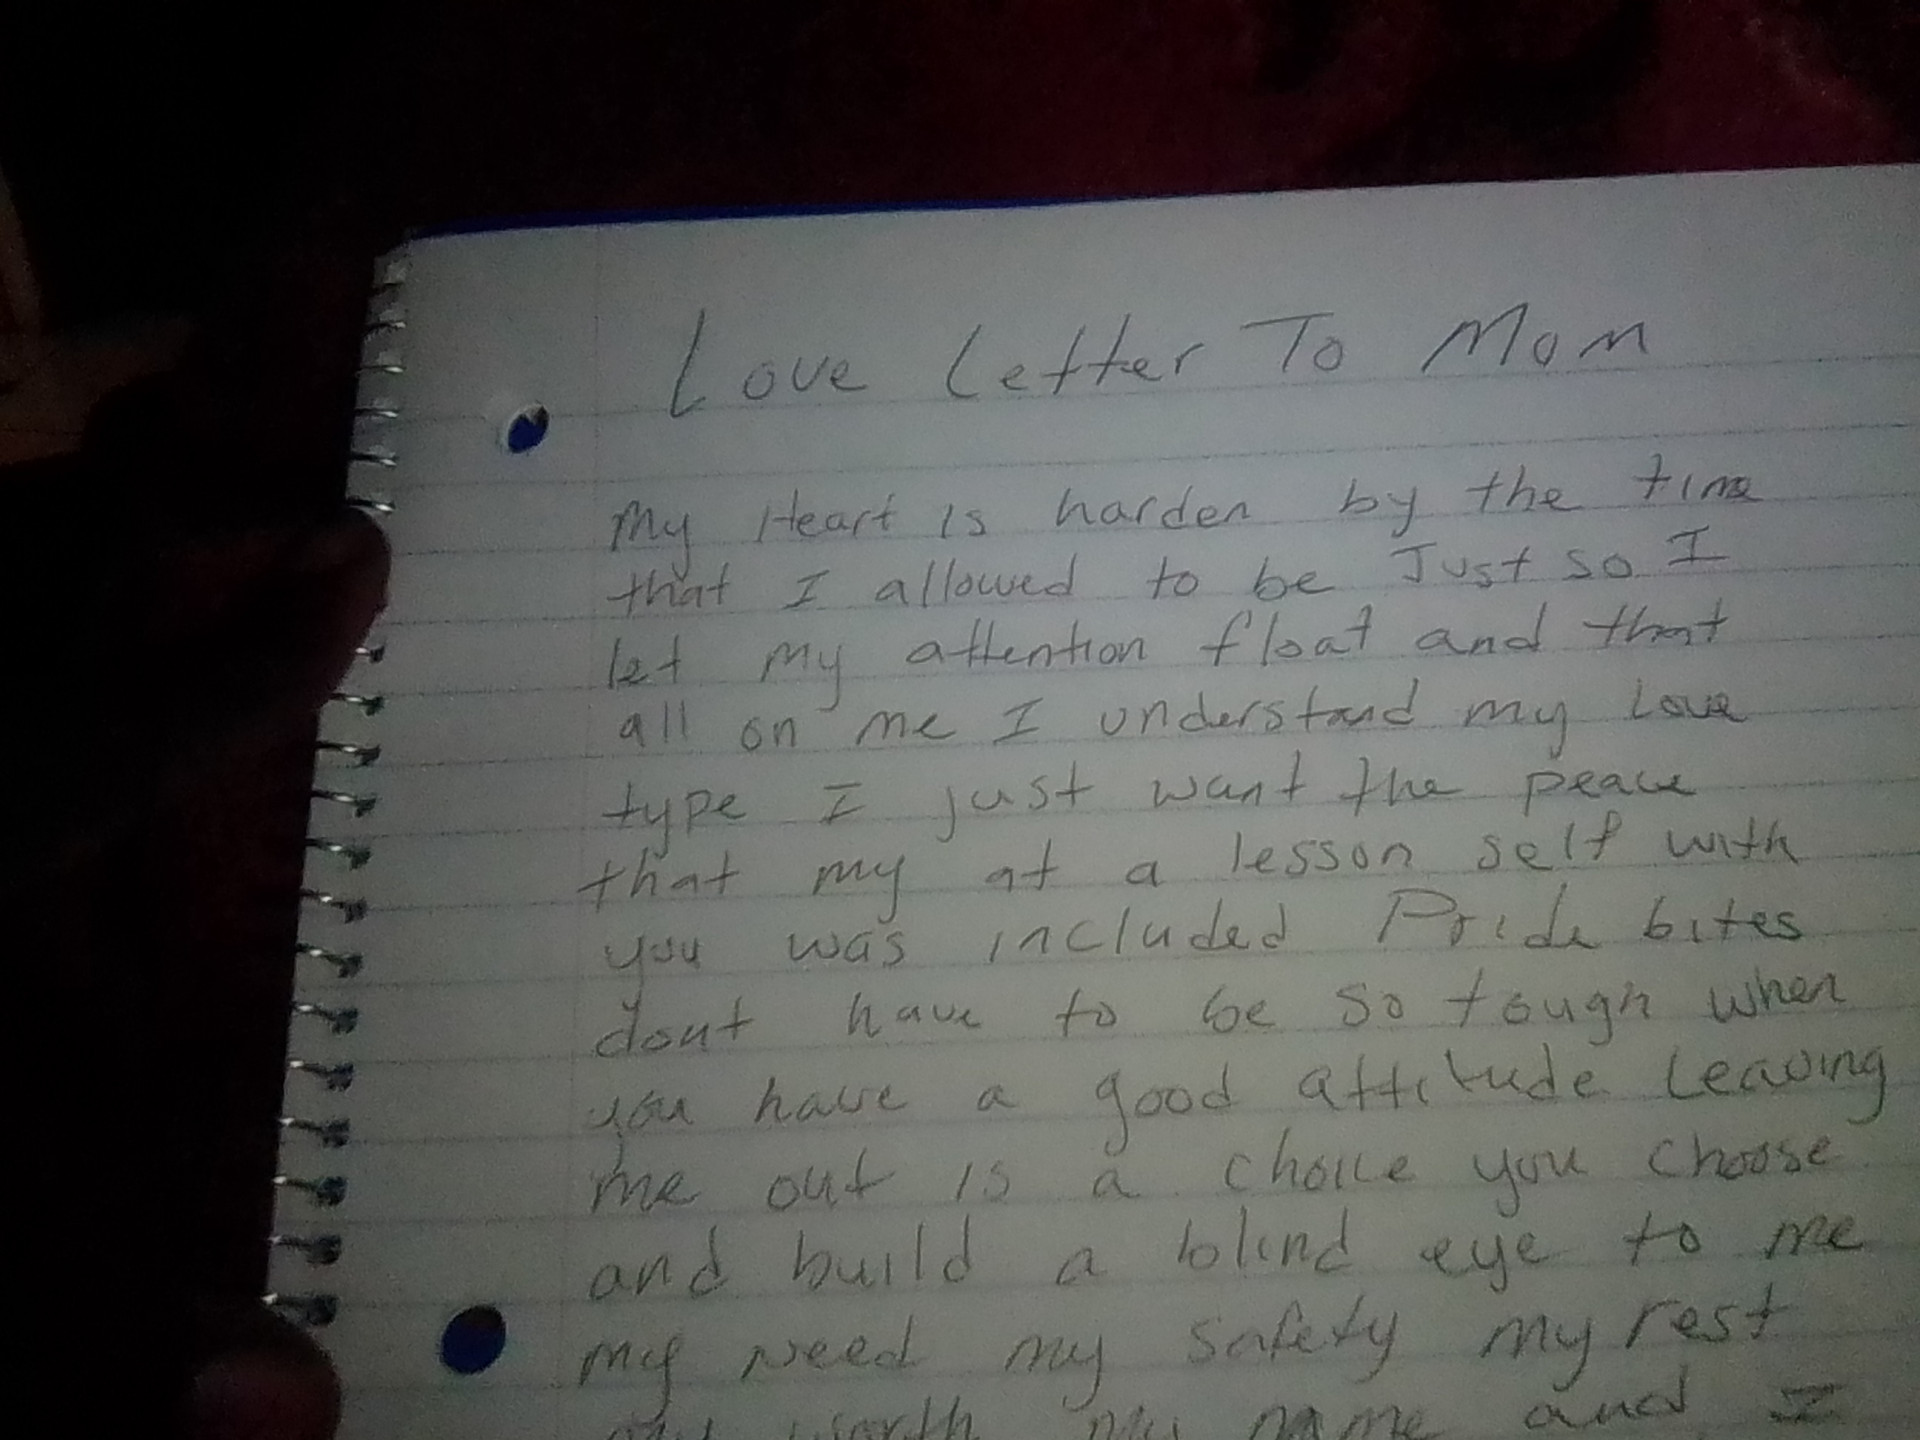 Love Letter To Mom
My Heart is harden by the time
that I allowed to be Just so I
let my attention float and that
all on me I understand my Love
type I just want the peace
that my at a lesson self with
you was included Pride bites
dont have to be so tough when
you have a good attitude Leaving
me out is a choice you choose
and build a blind eye to me
my Need my safety my rest
my worth my name and I